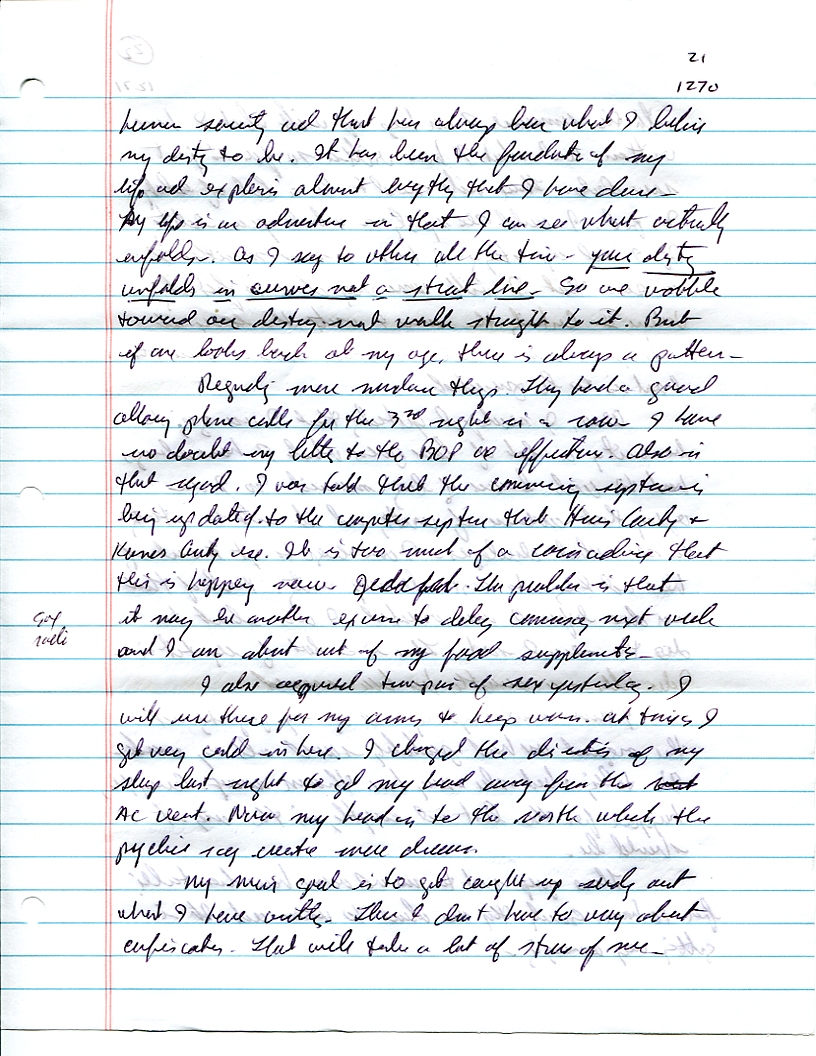 21
1270
human society and that has always been what I believe
my destiny to be. It has been the foundation of my
life and explains almost everything that I have done -
My life is an adventure in that I can see what actually
unfolds. As I say to others all the time - your destiny
unfolds in curves not a strait line - So we wobble
toward our destiny not walk straight to it. But
if one looks back at my age, there is always a pattern -
Regarding more mundane things. They had a guard
allowing phone calls for the 3rd night in a row - I have
no doubt my letter to the BOP was effective. Also in
that regard, I was told that the commissary system is
being updated to the computer system that Harris County &
County use. It is too much of a coincidence that
this is happening now - The problem is that
it may be another excuse to delay commissary next week
and I am about out of my food supplements -
I also acquired two pair of yesterday. I
will use these for my arms to keep warm. At times I
get very cold in here. I changed the direction of my
sleep last night to get my head away from the
AC vent. Now my head is to the north which the
psychics say creates more dreams.
My main goal is to get caught up sending out
what I have written. Then I don't have to worry about
confiscation. That will take a lot of stress off me -